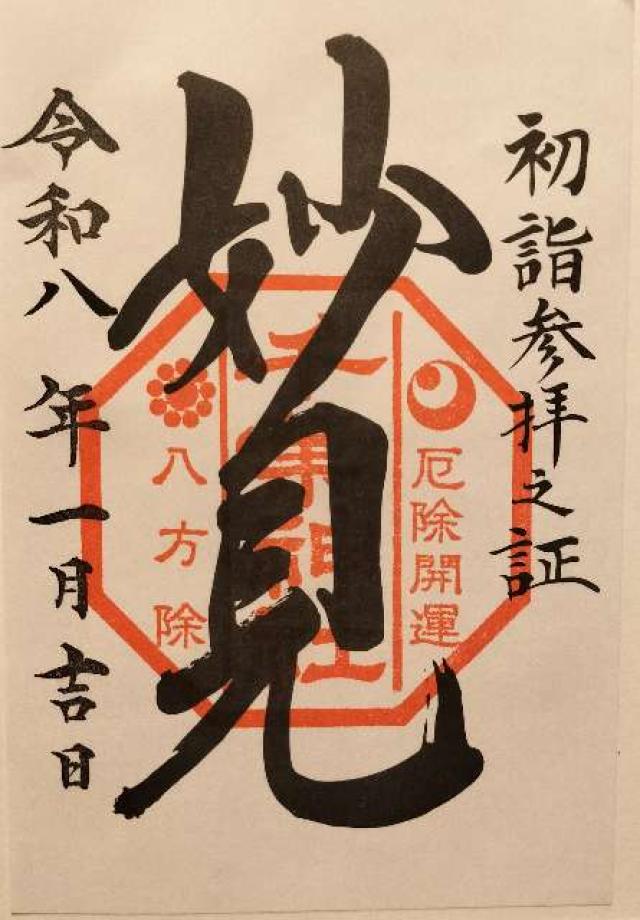 初詣参拝之証
厄除開運
妙見
八方除
令和八年一月吉日